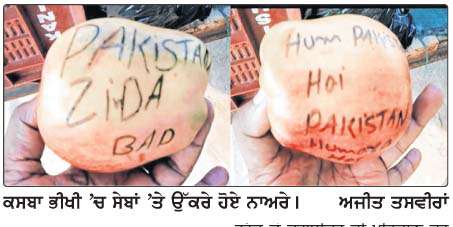 PAKISTAN
ZiDA
BAD
Hum PAKISTAN
Hai
PAKISTAN
Humara
ਕਸਬਾ ਭੀਖੀ 'ਚ ਸੇਬਾਂ 'ਤੇ ਉੱਕਰੇ ਹੋਏ ਨਾਅਰੇ। ਅਜੀਤ ਤਸਵੀਰਾਂ